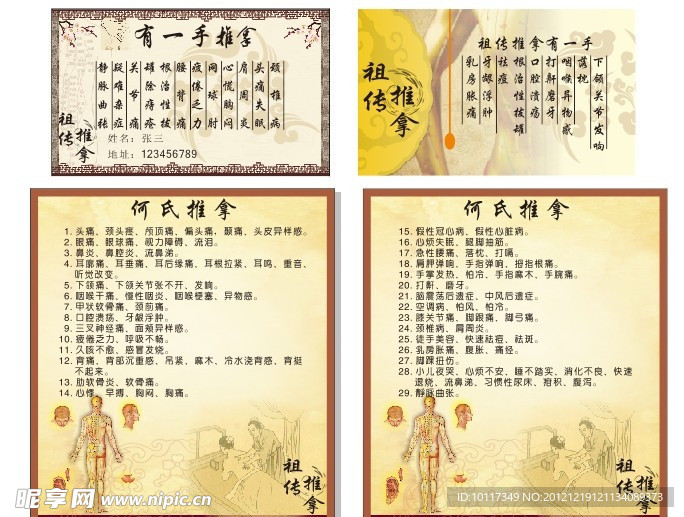 有一手推拿
颈椎病
头痛失眠
肩周炎
心慌胸闷
网球肘
疲倦乏力
腰背痛
根治性拔
罐除痔疮
关节痛
疑难杂症
静脉曲张
祖传
推拿
姓名：张三
地址：123456789
祖传推拿有一手
下颌关节发响
落枕
咽喉异物感
打鼾磨牙
口腔溃疡
根治性拔罐
祛痘
牙龈浮肿
乳房胀痛
祖传
推拿
何氏推拿
1. 头痛、颈头疼、颅顶痛、偏头痛，巅痛、头皮异样感。
2. 眼痛、眼球痛，视力障碍、流泪。
3. 鼻炎、鼻腔炎、流鼻涕。
4. 耳廓痛、耳垂痛、耳后缘痛、耳根拉紧、耳鸣、重音、
听觉改变。
5. 下颌痛、下颌关节张不开、发响。
6. 咽喉干痛、慢性咽炎、咽喉梗塞、异物感。
7. 甲状软骨痛、颈前痛。
8. 口腔溃疡、牙龈浮肿。
9. 三叉神经痛、面颊异样感。
10. 疲倦乏力、呼吸不畅。
11. 久咳不愈、感冒发烧。
12. 背痛、背部沉重感、吊紧、麻木、冷水浇背感、背挺
不起来。
13. 肋软骨炎、软骨痛。
14. 心悸、早搏、胸闷、胸痛。
祖传
推拿
何氏推拿
15. 假性冠心病、假性心脏病。
16. 心烦失眠、腿脚抽筋。
17. 急性腰痛、落枕、打嗝。
18. 肩胛弹响、手指弹响、拇指根痛。
19. 手掌发热、怕冷、手指麻木、手腕痛。
20. 打鼾、磨牙。
21. 脑震荡后遗症、中风后遗症。
22. 空调病、怕风、怕冷。
23. 膝关节痛、脚跟痛、脚弓痛。
24. 颈椎病、肩周炎。
25. 徒手美容、快速祛痘、祛斑。
26. 乳房胀痛、腹胀、痛经。
27. 脚踝扭伤。
28. 小儿夜哭、心烦不安、睡不踏实、消化不良、快速
退烧、流鼻涕、习惯性尿床、疳积、腹泻。
29. 静脉曲张。
祖传
推拿
昵享网 www.nipic.cn
ID:10117349 NO:20121219121134089373